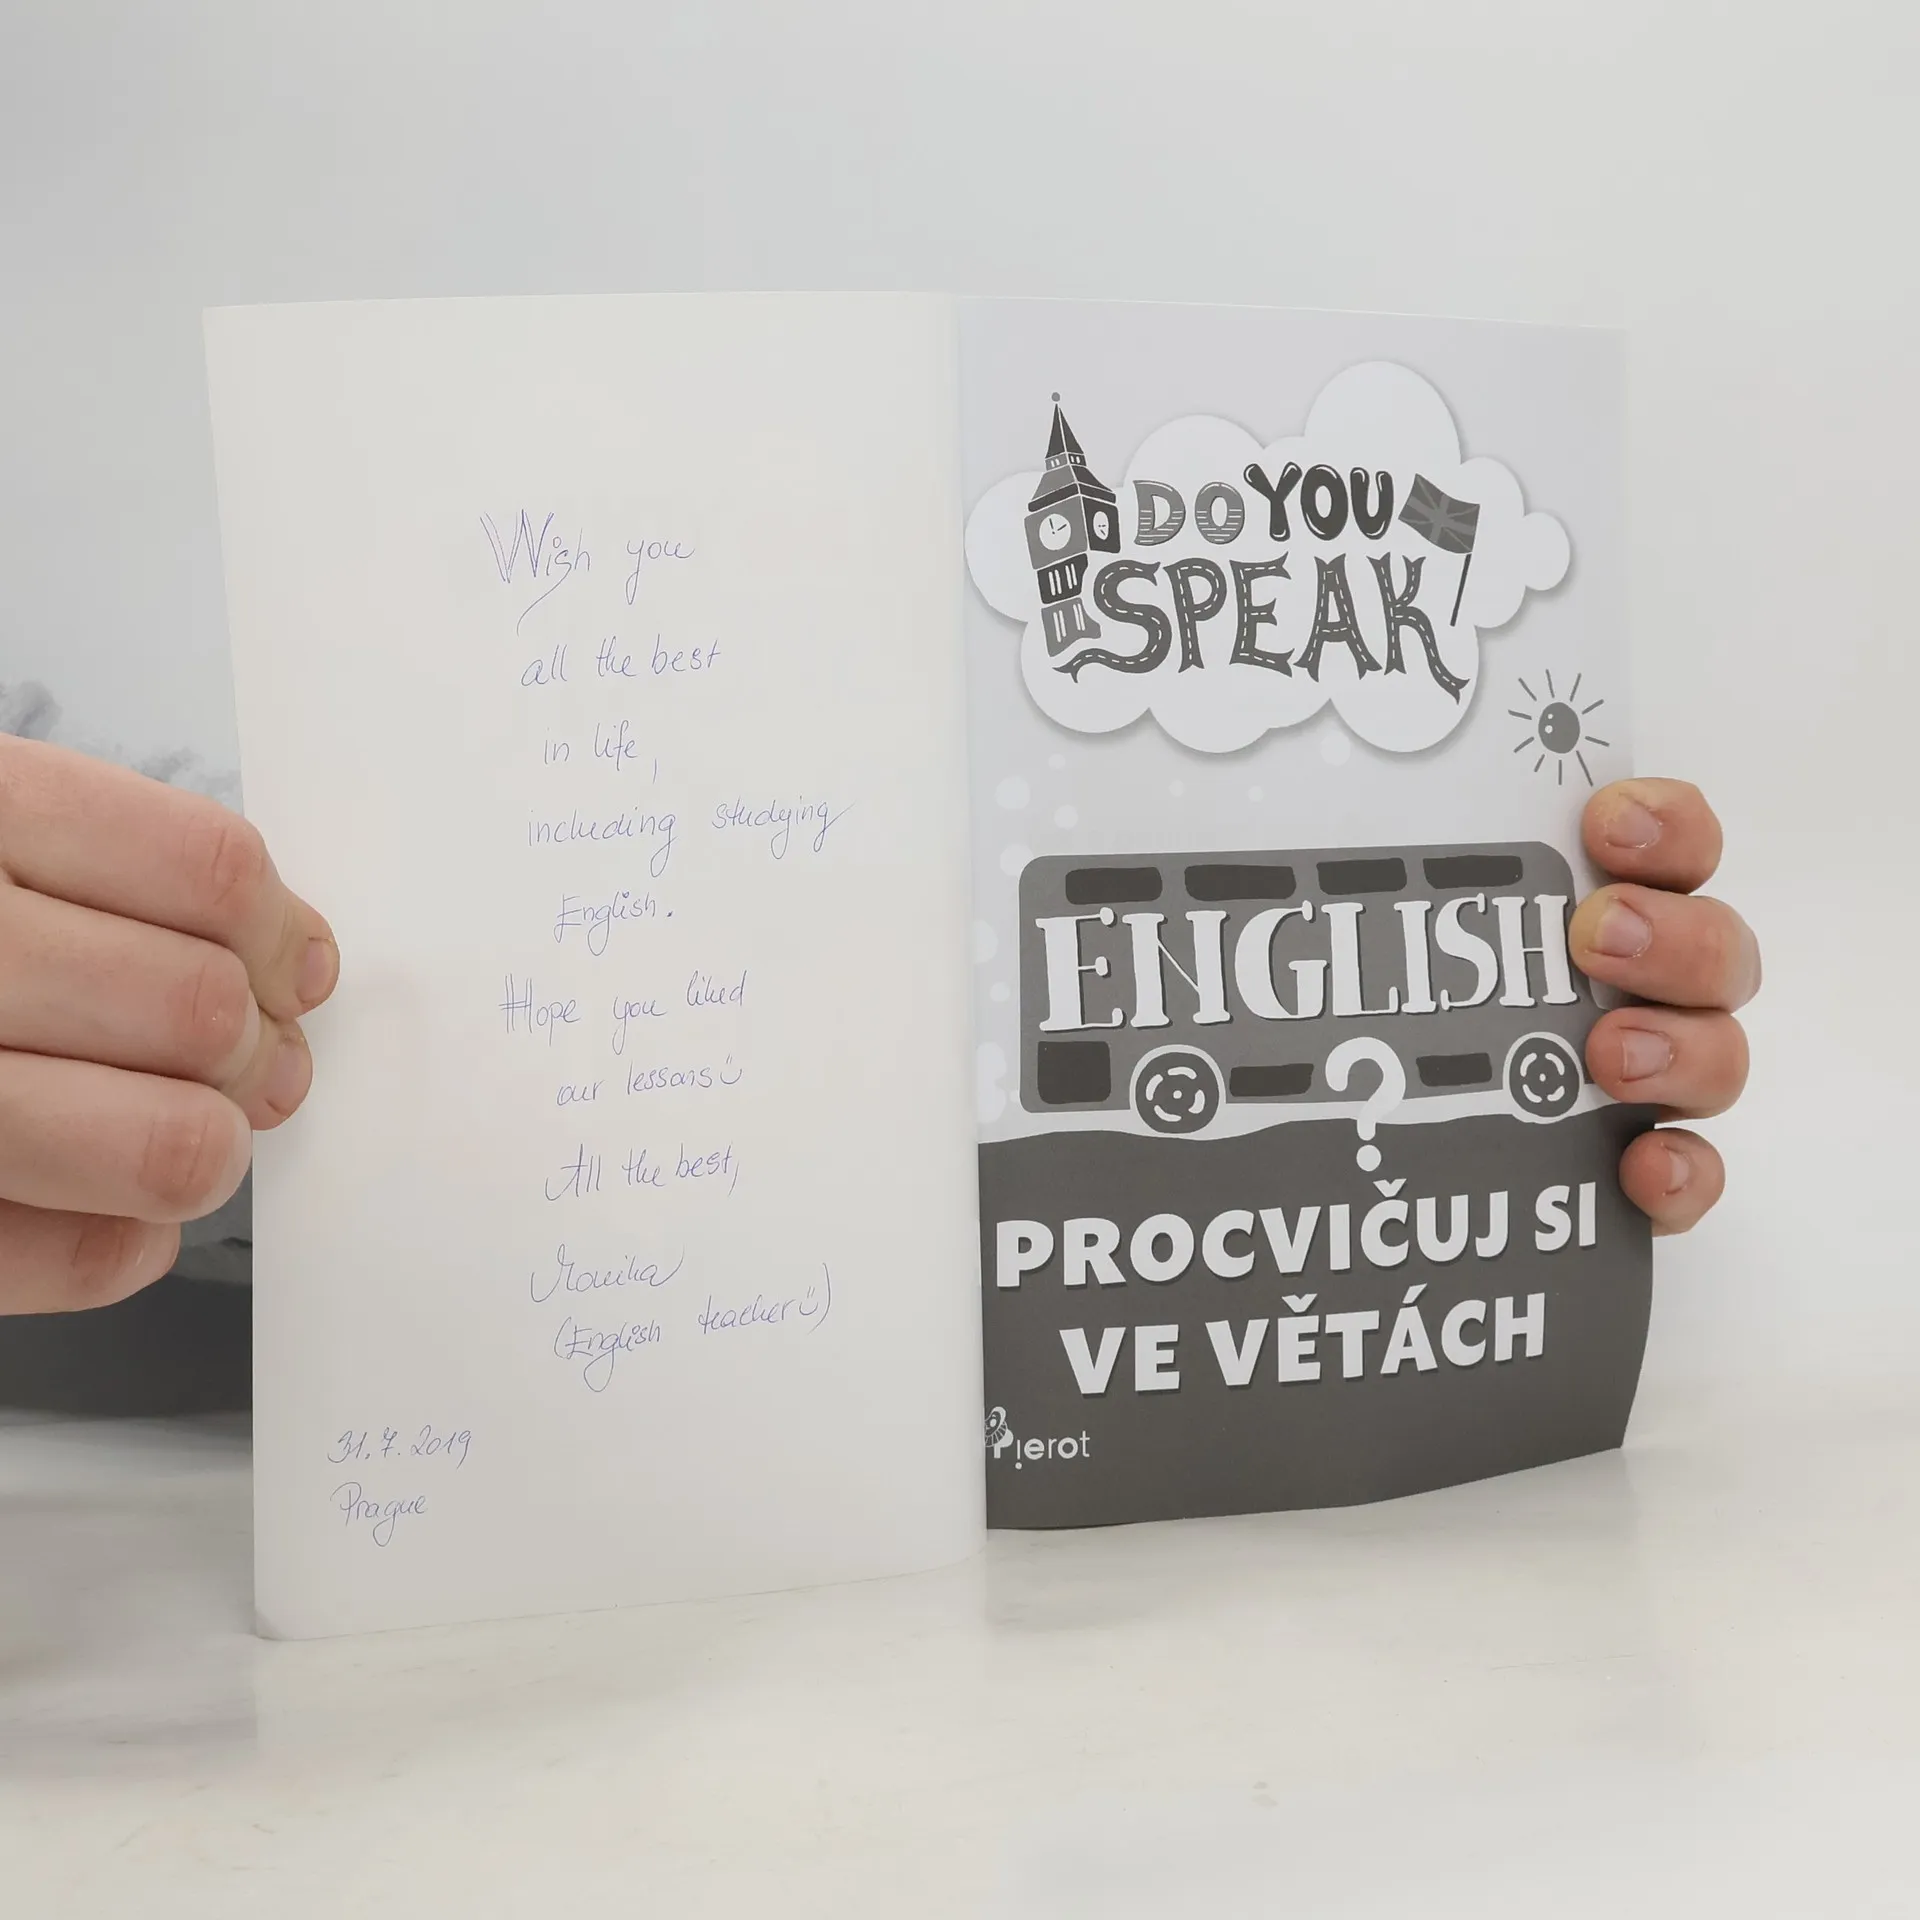 Wish you
all the best
in life,
including studying
English.
Hope you liked
our lessons
All the best,
Monika
(English teacher)
31.7.2019
Prague
DO YOU
SPEAK
ENGLISH
?
PROCVIČUJ SI
VE VĚTÁCH
Pierot